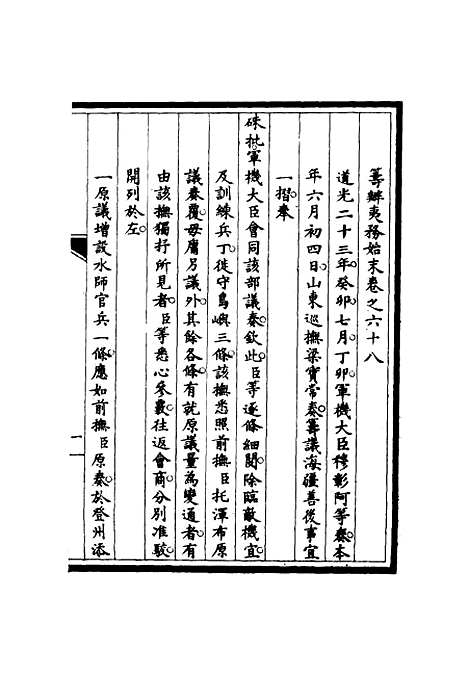 籌辦夷務始末卷之六十八
道光二十三年。癸卯。七月。丁卯。軍機大臣穆彰阿等奏。本
年六月初四日。山東巡撫梁寶常奏籌議海疆善後事宜
一摺。奉
硃批。軍機大臣會同該部議奏。欽此。臣等逐條細閱。除臨敵機宜。
及訓練兵丁。徙守島嶼三條。該撫悉照前撫臣托渾布原
議奏覆。毋庸另議外。其餘各條。有就原議量為變通者。有
由該撫獨抒所見者。臣等悉心參覈。往返會商。分別准駮。
開列於左。
一原議增設水師官兵一條。應如前撫臣原奏。於登州添
一